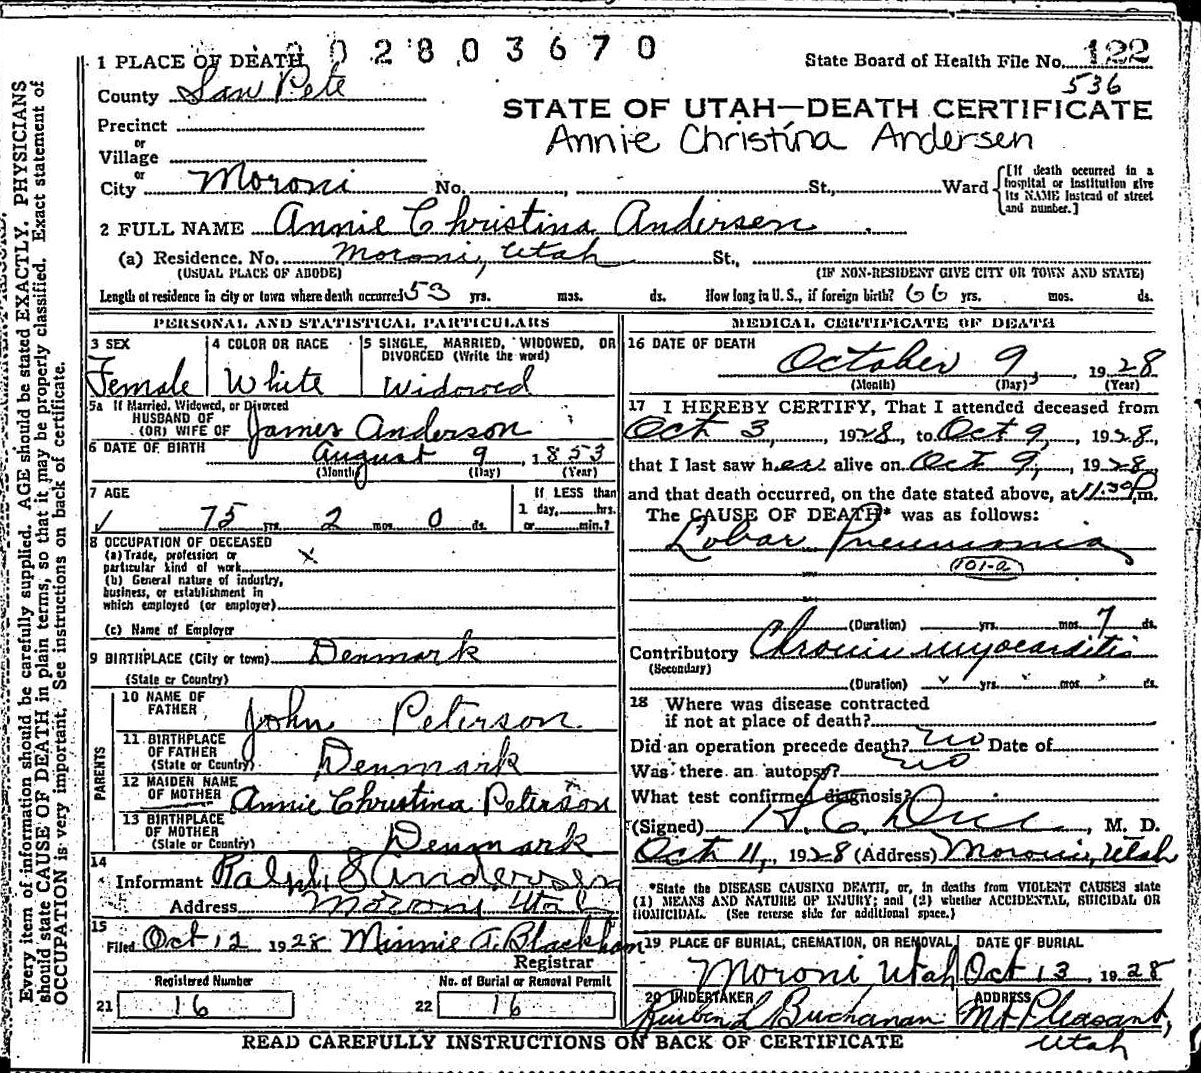 Every item of information should be carefully supplied. AGE should be stated EXACTLY. PHYSICIANS
should state CAUSE OF DEATH in plain terms, so that it may be properly classified. Exact statement of
OCCUPATION is very important. See instructions on back of certificate.
1 PLACE OF DEATH
02803670
State Board of Health File No. 122
536
County San Pete
STATE OF UTAH—DEATH CERTIFICATE
Precinct
Annie Christina Andersen
or
Village
or
City Moroni No. , St., Ward
[If death occurred in a
hospital or institution give
its NAME instead of street
and number.]
2 FULL NAME Annie Christina Andersen
(a) Residence. No. Moroni, Utah St.,
(USUAL PLACE OF ABODE) (IF NON-RESIDENT GIVE CITY OR TOWN AND STATE)
Length of residence in city or town where death occurred 53 yrs. mos. ds. How long in U. S., if foreign birth? 66 yrs. mos. ds.
PERSONAL AND STATISTICAL PARTICULARS
3 SEX
Female
4 COLOR OR RACE
White
5 SINGLE, MARRIED, WIDOWED, OR
DIVORCED (Write the word)
Widowed
5a If Married, Widowed, or Divorced
HUSBAND OF
(OR) WIFE OF James Anderson
6 DATE OF BIRTH August 9, 1853
(Month) (Day) (Year)
7 AGE
75 yrs. 2 mos. 0 ds.
If LESS than
1 day, hrs.
or min.?
8 OCCUPATION OF DECEASED
(a) Trade, profession or
particular kind of work x
(b) General nature of industry,
business, or establishment in
which employed (or employer)
(c) Name of Employer
9 BIRTHPLACE (City or town) Denmark
(State or Country)
PARENTS
10 NAME OF
FATHER John Peterson
11 BIRTHPLACE
OF FATHER
(State or Country) Denmark
12 MAIDEN NAME
OF MOTHER Annie Christina Peterson
x
13 BIRTHPLACE
OF MOTHER
(State or Country) Denmark
14
Informant Ralph S Andersen
Address Moroni Utah
15
Filed Oct 12 1928 Minnie A. Blackham
Registrar
Registered Number
21 16
No. of Burial or Removal Permit
22 16
MEDICAL CERTIFICATE OF DEATH
16 DATE OF DEATH
October 9, 1928
(Month) (Day) (Year)
17 I HEREBY CERTIFY, That I attended deceased from
Oct 3, 1928, to Oct 9, 1928,
that I last saw her alive on Oct 9, 1928,
and that death occurred, on the date stated above, at 11:30 P m.
The CAUSE OF DEATH* was as follows:
Lobar Pneumonia
101-a
(Duration) yrs. mos. 7 ds.
Contributory Chronic myocarditis
(Secondary)
(Duration) yrs. mos. ds.
18 Where was disease contracted
if not at place of death?
Did an operation precede death? no Date of
Was there an autopsy? no
What test confirmed diagnosis?
(Signed) , M. D.
Oct 11, 1928 (Address) Moroni, Utah
*State the DISEASE CAUSING DEATH, or, in deaths from VIOLENT CAUSES state
(1) MEANS AND NATURE OF INJURY; and (2) whether ACCIDENTAL, SUICIDAL OR
HOMICIDAL. (See reverse side for additional space.)
19 PLACE OF BURIAL, CREMATION, OR REMOVAL
Moroni Utah
DATE OF BURIAL
Oct 13 1928
20 UNDERTAKER
Reuben L Buchanan
ADDRESS
Mt Pleasant,
Utah
READ CAREFULLY INSTRUCTIONS ON BACK OF CERTIFICATE